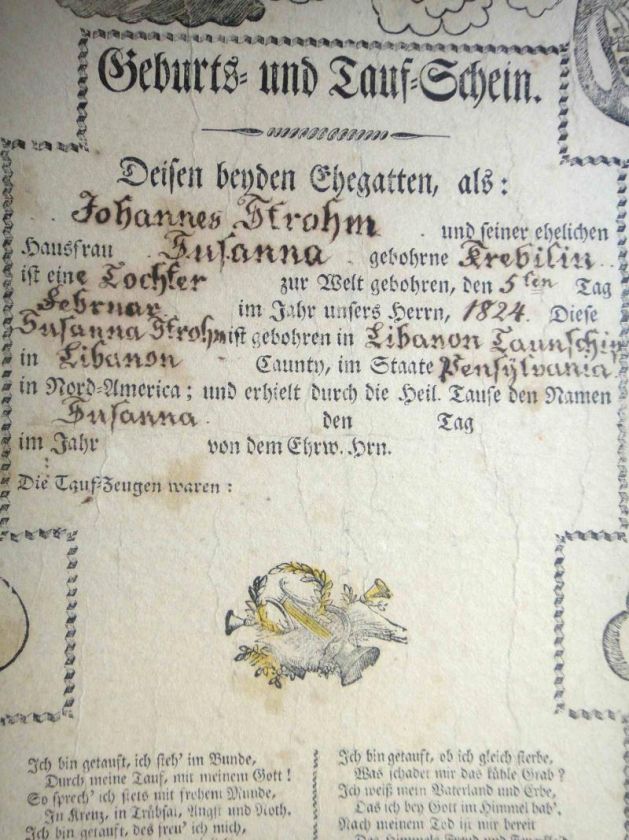 Geburts- und Tauf-Schein.
Deisen beyden Ehegatten, als:
Johannes Strohm und seiner ehelichen
Hausfrau Susanna gebohrne Krebilin
ist eine Tochter zur Welt gebohren, den 5ten Tag
Februar im Jahr unsers Herrn, 1824. Diese
Susanna Strohm ist gebohren in Libanon Taunschip
in Libanon Caunty, im Staate Pensylvania
in Nord-America; und erhielt durch die Heil. Taufe den Namen
Susanna den Tag
im Jahr von dem Ehrw. Hrn.
Die Tauf-Zeugen waren:
Ich bin getauft, ich steh' im Bunde,
Durch meine Tauf, mit meinem Gott!
So sprech' ich stets mit frohem Munde,
In Kreuz, in Trübsal, Angst und Noth.
Ich bin getauft, des freu' ich mich,
Ich bin getauft, ob ich gleich sterbe,
Was schadet mir das kühle Grab?
Ich weiß mein Vaterland und Erbe,
Das ich bey Gott im Himmel hab'.
Nach meinem Tod ist mir bereit